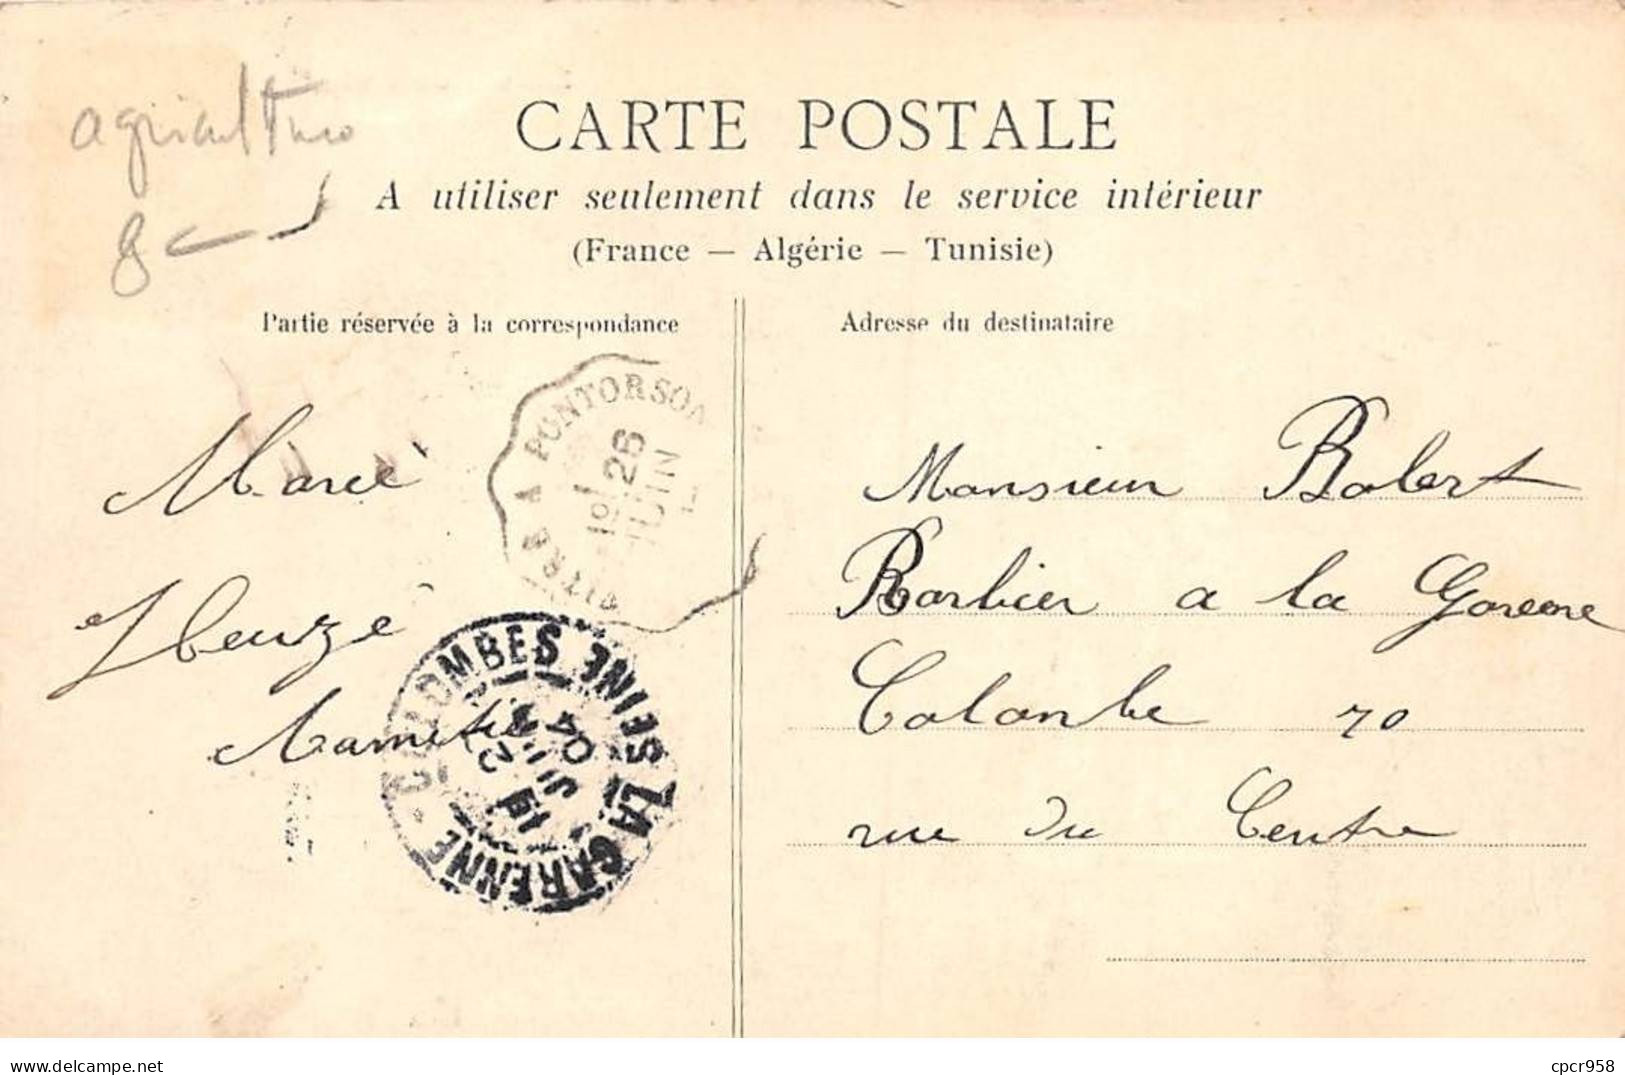 agriculture
8
CARTE POSTALE
A utiliser seulement dans le service intérieur
(France — Algérie — Tunisie)
Partie réservée à la correspondance
Adresse du destinataire
VITRÉ A PONTORSON
26
JUIN
Marcel
Monsieur Robert
Barbier a la Garenne
Colombe 70
rue du Centre
LA GARENNE-COLOMBES SEINE
JUIN
04
Delcampe.net
cpcr958